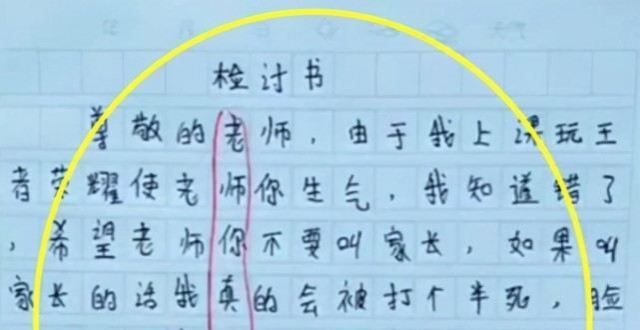 检讨书
尊敬的老师，由于我上课玩王
者荣耀使老师你生气，我知道错了
，希望老师你不要叫家长，如果叫
家长的话我真的会被打个半死，脸